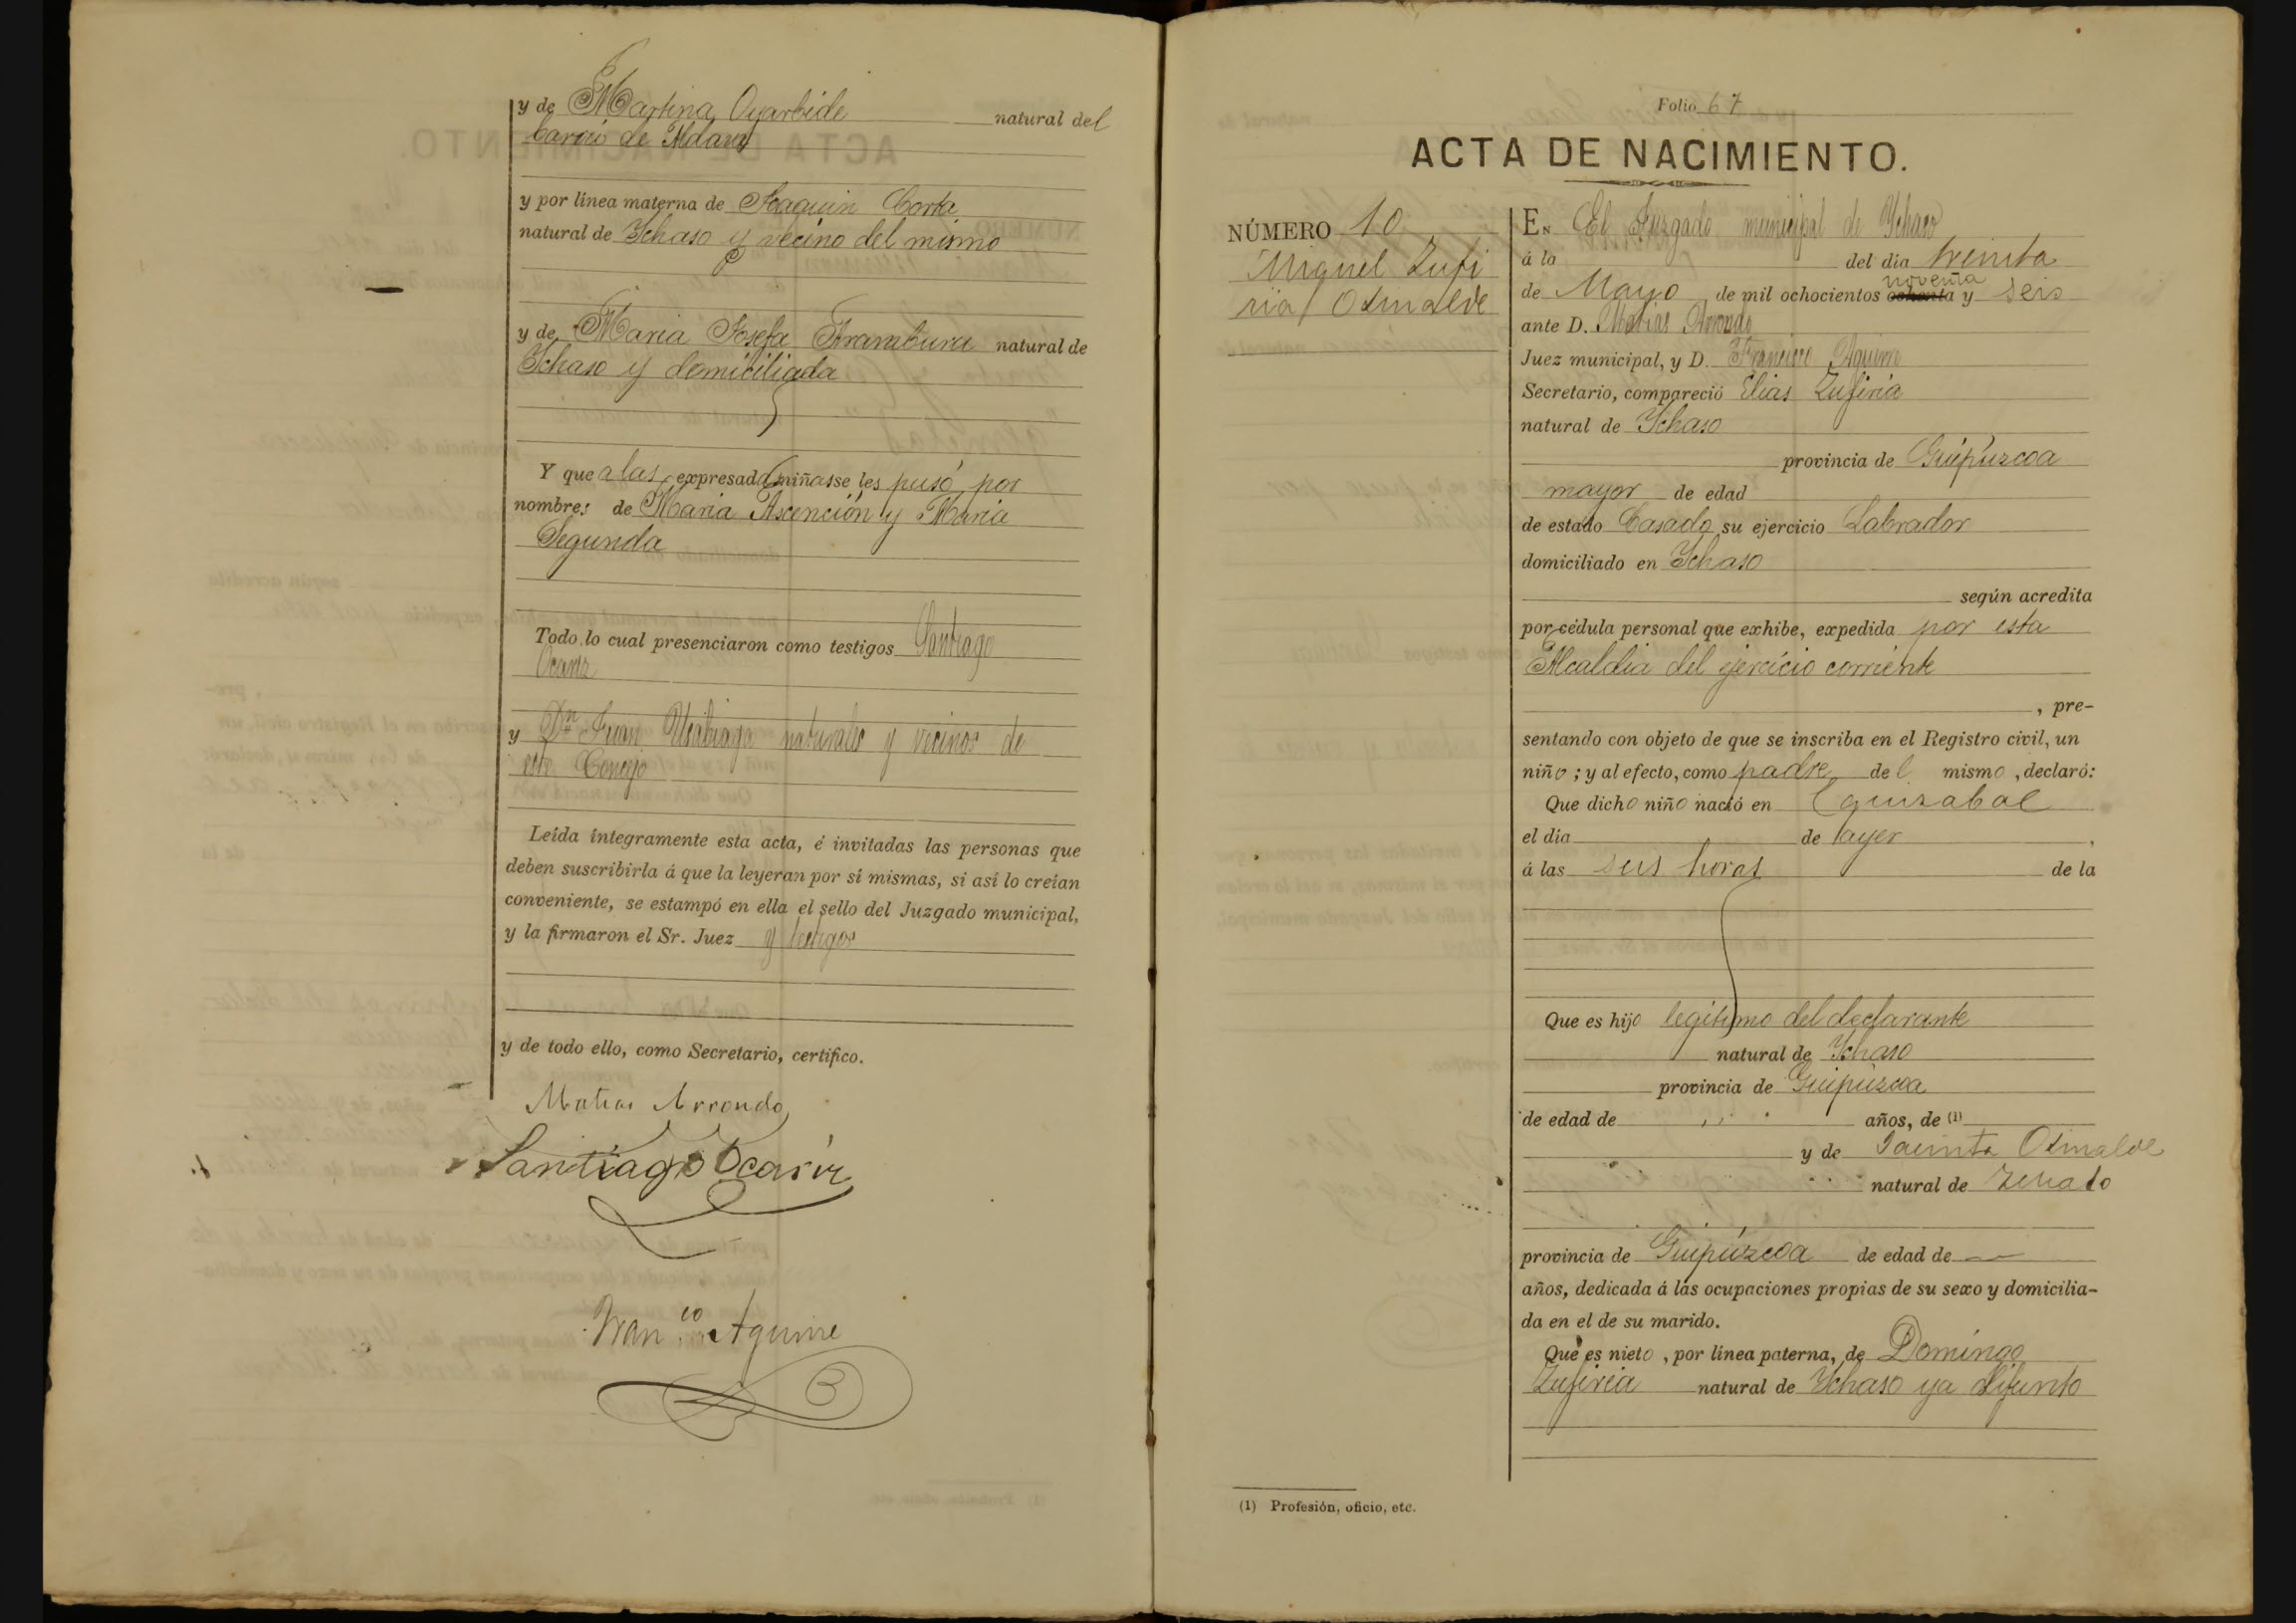 y de Martina Oyarbide natural del
barrio de Aldava
y por línea materna de Joaquin Corta
natural de Ychaso y vecino del mismo
y de Maria Josefa Aramburu natural de
Ychaso y domiciliada
Y que a las expresadas niñas se les pusó por
nombres de Maria Ascención y Maria
Segunda
Todo lo cual presenciaron como testigos Santiago
Ocariz
y Dn Juan Usabiaga naturales y vecinos de
este Concejo
Leída íntegramente esta acta, é invitadas las personas que
deben suscribirla á que la leyeran por sí mismas, si así lo creían
conveniente, se estampó en ella el sello del Juzgado municipal,
y la firmaron el Sr. Juez y testigos
y de todo ello, como Secretario, certifico.
Matias Arrondo
Santiago Ocariz
Franco Aguirre
Folio 67
ACTA DE NACIMIENTO.
NÚMERO 10
Miguel Zufi
ria Otinalde
En El Juzgado municipal de Ychaso
á la del dia treinta
de Mayo de mil ochocientos noventa y seis
ante D. Matias Arrondo
Juez municipal, y D. Francisco Aguirre
Secretario, compareció Elias Zufiria
natural de Ychaso
provincia de Guipúzcoa
mayor de edad
de estado Casado su ejercicio Labrador
domiciliado en Ychaso
según acredita
por cédula personal que exhibe, expedida por esta
Alcaldia del ejercicio corriente
, pre-
sentando con objeto de que se inscriba en el Registro civil, un
niño; y al efecto, como padre del mismo, declaró:
Que dicho niño nació en Eguizabal
el día de ayer,
á las seis horas de la
Que es hijo legitimo del declarante
natural de Ychaso
provincia de Guipúzcoa
de edad de años, de (1)
y de Jacinta Otinalde
natural de
provincia de Guipúzcoa de edad de —
años, dedicada á las ocupaciones propias de su sexo y domicilia-
da en el de su marido.
Que es nieto, por línea paterna, de Domingo
Zufiria natural de Ychaso ya difunto
(1) Profesión, oficio, etc.